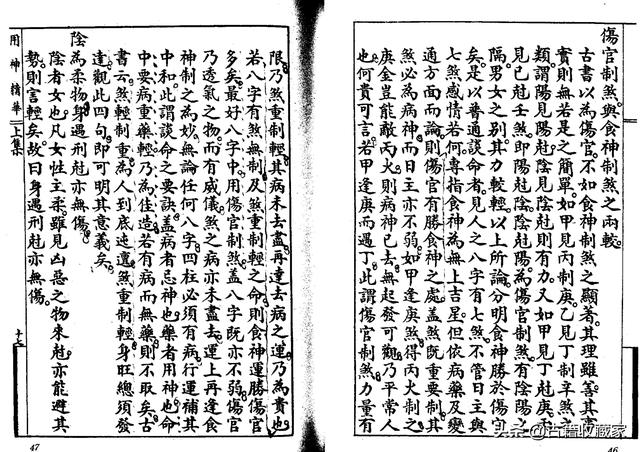 傷官制煞與食神制煞之兩較
古書以為傷官不如食神制煞之顯著其理雖善其
實則無若是之簡單如甲見丙制庚乙見丁制辛煞之
類謂陽見陽尅陰見陰尅則有力又如甲見丁尅庚乙
見己尅壬煞即陽尅陰陰尅陽為傷官制煞有陰陽之
隔男女之别其力較輕以上所論分明食神勝於傷官
矣是以普通談命者見人之八字有七煞不管日主與
七煞感情若何專指食神為無上吉星但依病藥及變
通方面而論則傷官有勝食神之處蓋煞既重要制其
煞必為病神而日主亦不弱如甲逢庚煞得丙火制之
庚金豈能敵丙火則病神已去無起發可觀乃平常人
也何貴可言若甲逢庚而遇丁此謂傷官制煞力量有
限乃煞重制輕其病未去盡再達去病之運乃為貴也
若八字有煞無制及煞重制輕之命則食神運勝傷官
多矣最好八字中用傷官制煞蓋八字既亦不弱傷官
乃透氣之物而有威儀煞之病亦未盡去運上再逢食
神制之為妙無論任何八字四柱必須有病行運補其
中和此謂談命之要訣蓋病者忌神也藥者用神也命
中要病重藥輕乃為佳造若有病而無藥則不取矣古
書云煞輕制重為人到底迍邅煞重制輕身旺總須發
達觀此四句即可明其意義矣
陰為柔物身遇刑尅亦無傷
陰者女也凡女性主柔雖見凶惡之物來尅亦能避其
勢則言輕矣故曰身遇刑尅亦無傷
用神精華 上集
十七
47
46
头条 @古籍收藏家